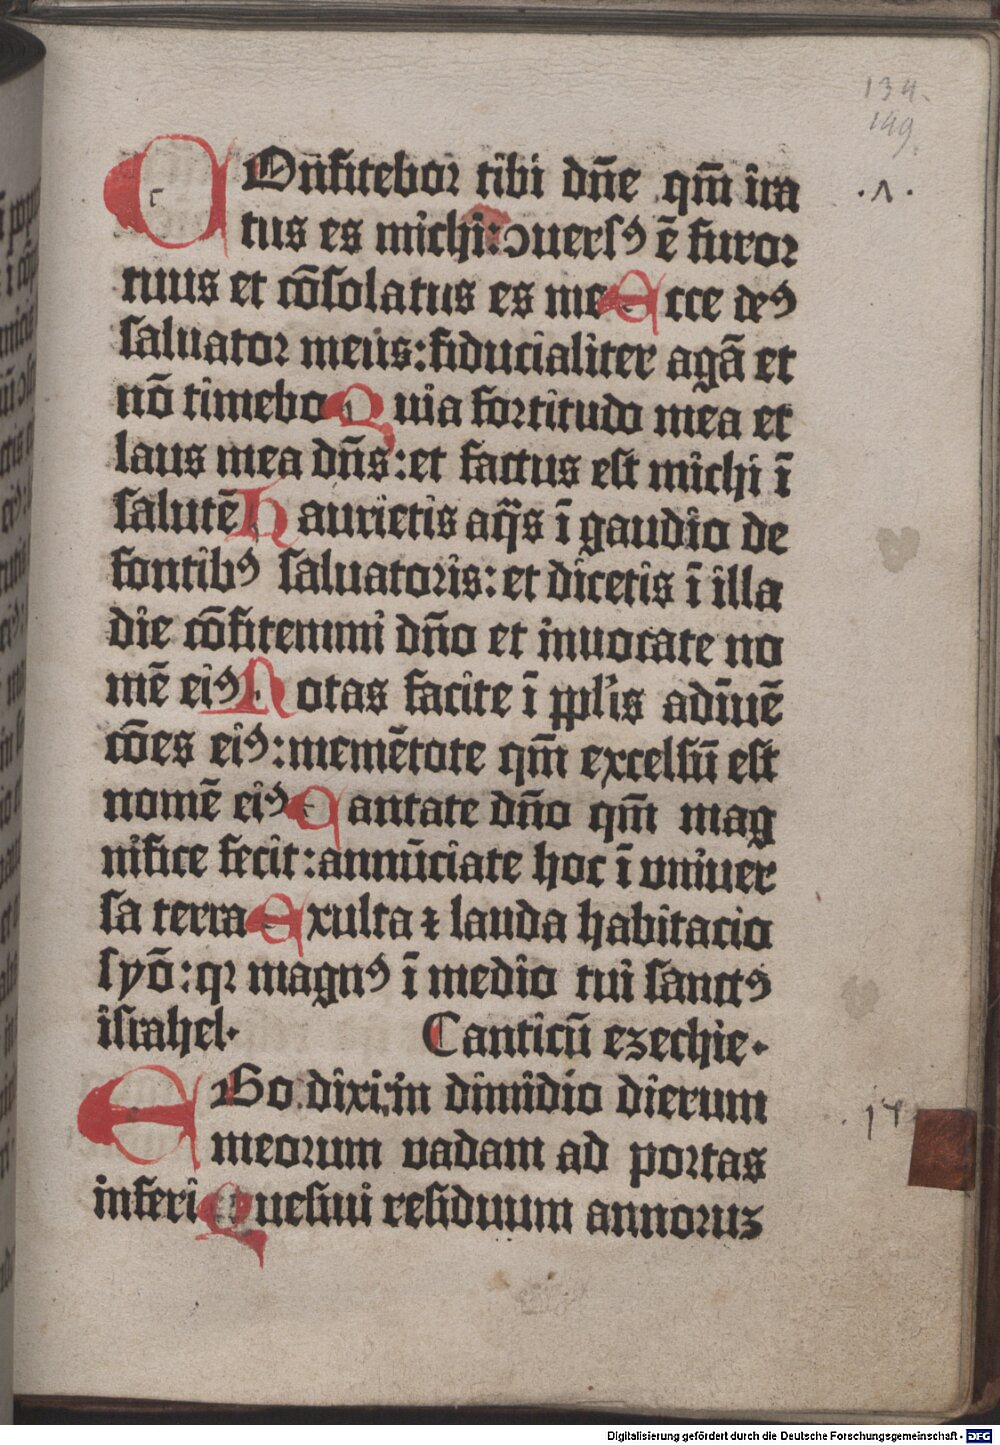 134.
149.
COnfitebor tibi dn̄e qm̄ ira
.1.
tus es michi: ↄuersꝰ ē furor
tuus et cōsolatus es me Ecce deꝰ
saluator meus: fiducialiter agā et
nō timebo Quia fortitudo mea et
laus mea dn̄s: et factus est michi ī
salutē Haurietis aq̄s ī gaudio de
fontibꝰ saluatoris: et dicetis ī illa
die cōfitemini dn̄o et inuocate no
mē eiꝰ Notas facite ī pplīs adīuē
cōes eiꝰ: memētote qm̄ excelsū est
nomē eiꝰ Cantate dn̄o qm̄ mag
nifice fecit: annūciate hoc ī vniuer
sa terra Exulta ⁊ lauda habitacio
syō: qꝛ magnꝰ ī medio tui sanctꝰ
israhel. Canticū ezechie.
EGo dixi: in dimidio dierum
meorum vadam ad portas
inferi Quesiui residuum annoruz
Digitalisierung gefördert durch die Deutsche Forschungsgemeinschaft - DFG